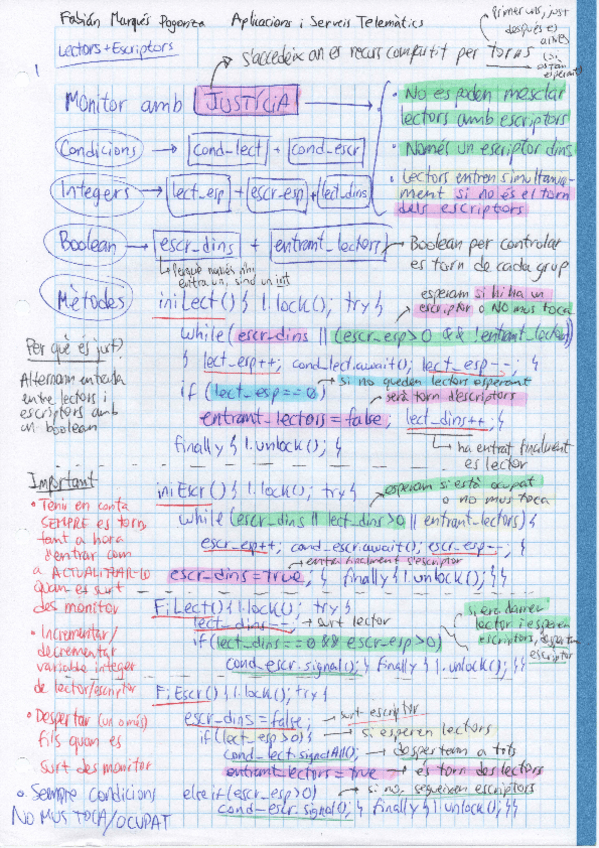 Fabián Marqués Poganza Aplicacions i Serveis Telemàtics
Lectors + Escriptors
s'accedeix an es recurs compartit per torns
primer uns, just després es altres (si estan esperant)
1
Monitor amb JUSTÍCIA
• No es poden mesclar lectors amb escriptors
• Només un escriptor dins
• Lectors entren simultaniament si no és el torn dels escriptors
Condicions → cond_lect + cond_escr
Integers → lect_esp + escr_esp + lect_dins
Boolean → escr_dins + entrant_lectors → Boolean per controlar es torn de cada grup
Perquè només n'hi entra un, sinó un int
Mètodes
iniLect() { l.lock(); try {
esperam si hi ha un escriptor o NO mus toca
while (escr_dins || (escr_esp>0 && !entrant_lectors))
{ lect_esp++; cond_lect.await(); lect_esp--; }
if (lect_esp==0) → si no queden lectors esperant
serà torn d'escriptors
entrant_lectors = false; lect_dins++; }
ha entrat finalment es lector
finally { l.unlock(); }
Per què és just?
Alternam entrada
entre lectors i
escriptors amb
un boolean
iniEscr() { l.lock(); try {
esperam si està ocupat o no mus toca
while (escr_dins || lect_dins>0 || entrant_lectors) {
escr_esp++; cond_escr.await(); escr_esp--; }
entra finalment s'escriptor
escr_dins = true; } finally { l.unlock(); }}
Important
• Tenir en conta
SEMPRE es torn,
tant a hora
d'entrar com
a ACTUALITZAR-LO
quan es surt
des monitor
• Incrementar/
decrementar
variable integer
de lector/escriptor
• Despertar (un o més)
fils quan es
surt des monitor
• Sempre condicions
NO MUS TOCA/OCUPAT
FiLect() { l.lock(); try {
lect_dins--; → surt lector
si era darrer lector i esperen escriptors, despertam escriptor
if (lect_dins==0 && escr_esp>0)
cond_escr.signal(); } finally { l.unlock(); }}
FiEscr() { l.lock(); try {
escr_dins = false; → surt escriptor
if (lect_esp>0) { → si esperen lectors
cond_lect.signalAll(); → despertam a tots
entrant_lectors = true → és torn des lectors
else if (escr_esp>0) → si no, segueixen escriptors
cond_escr.signal(); } finally { l.unlock(); }}